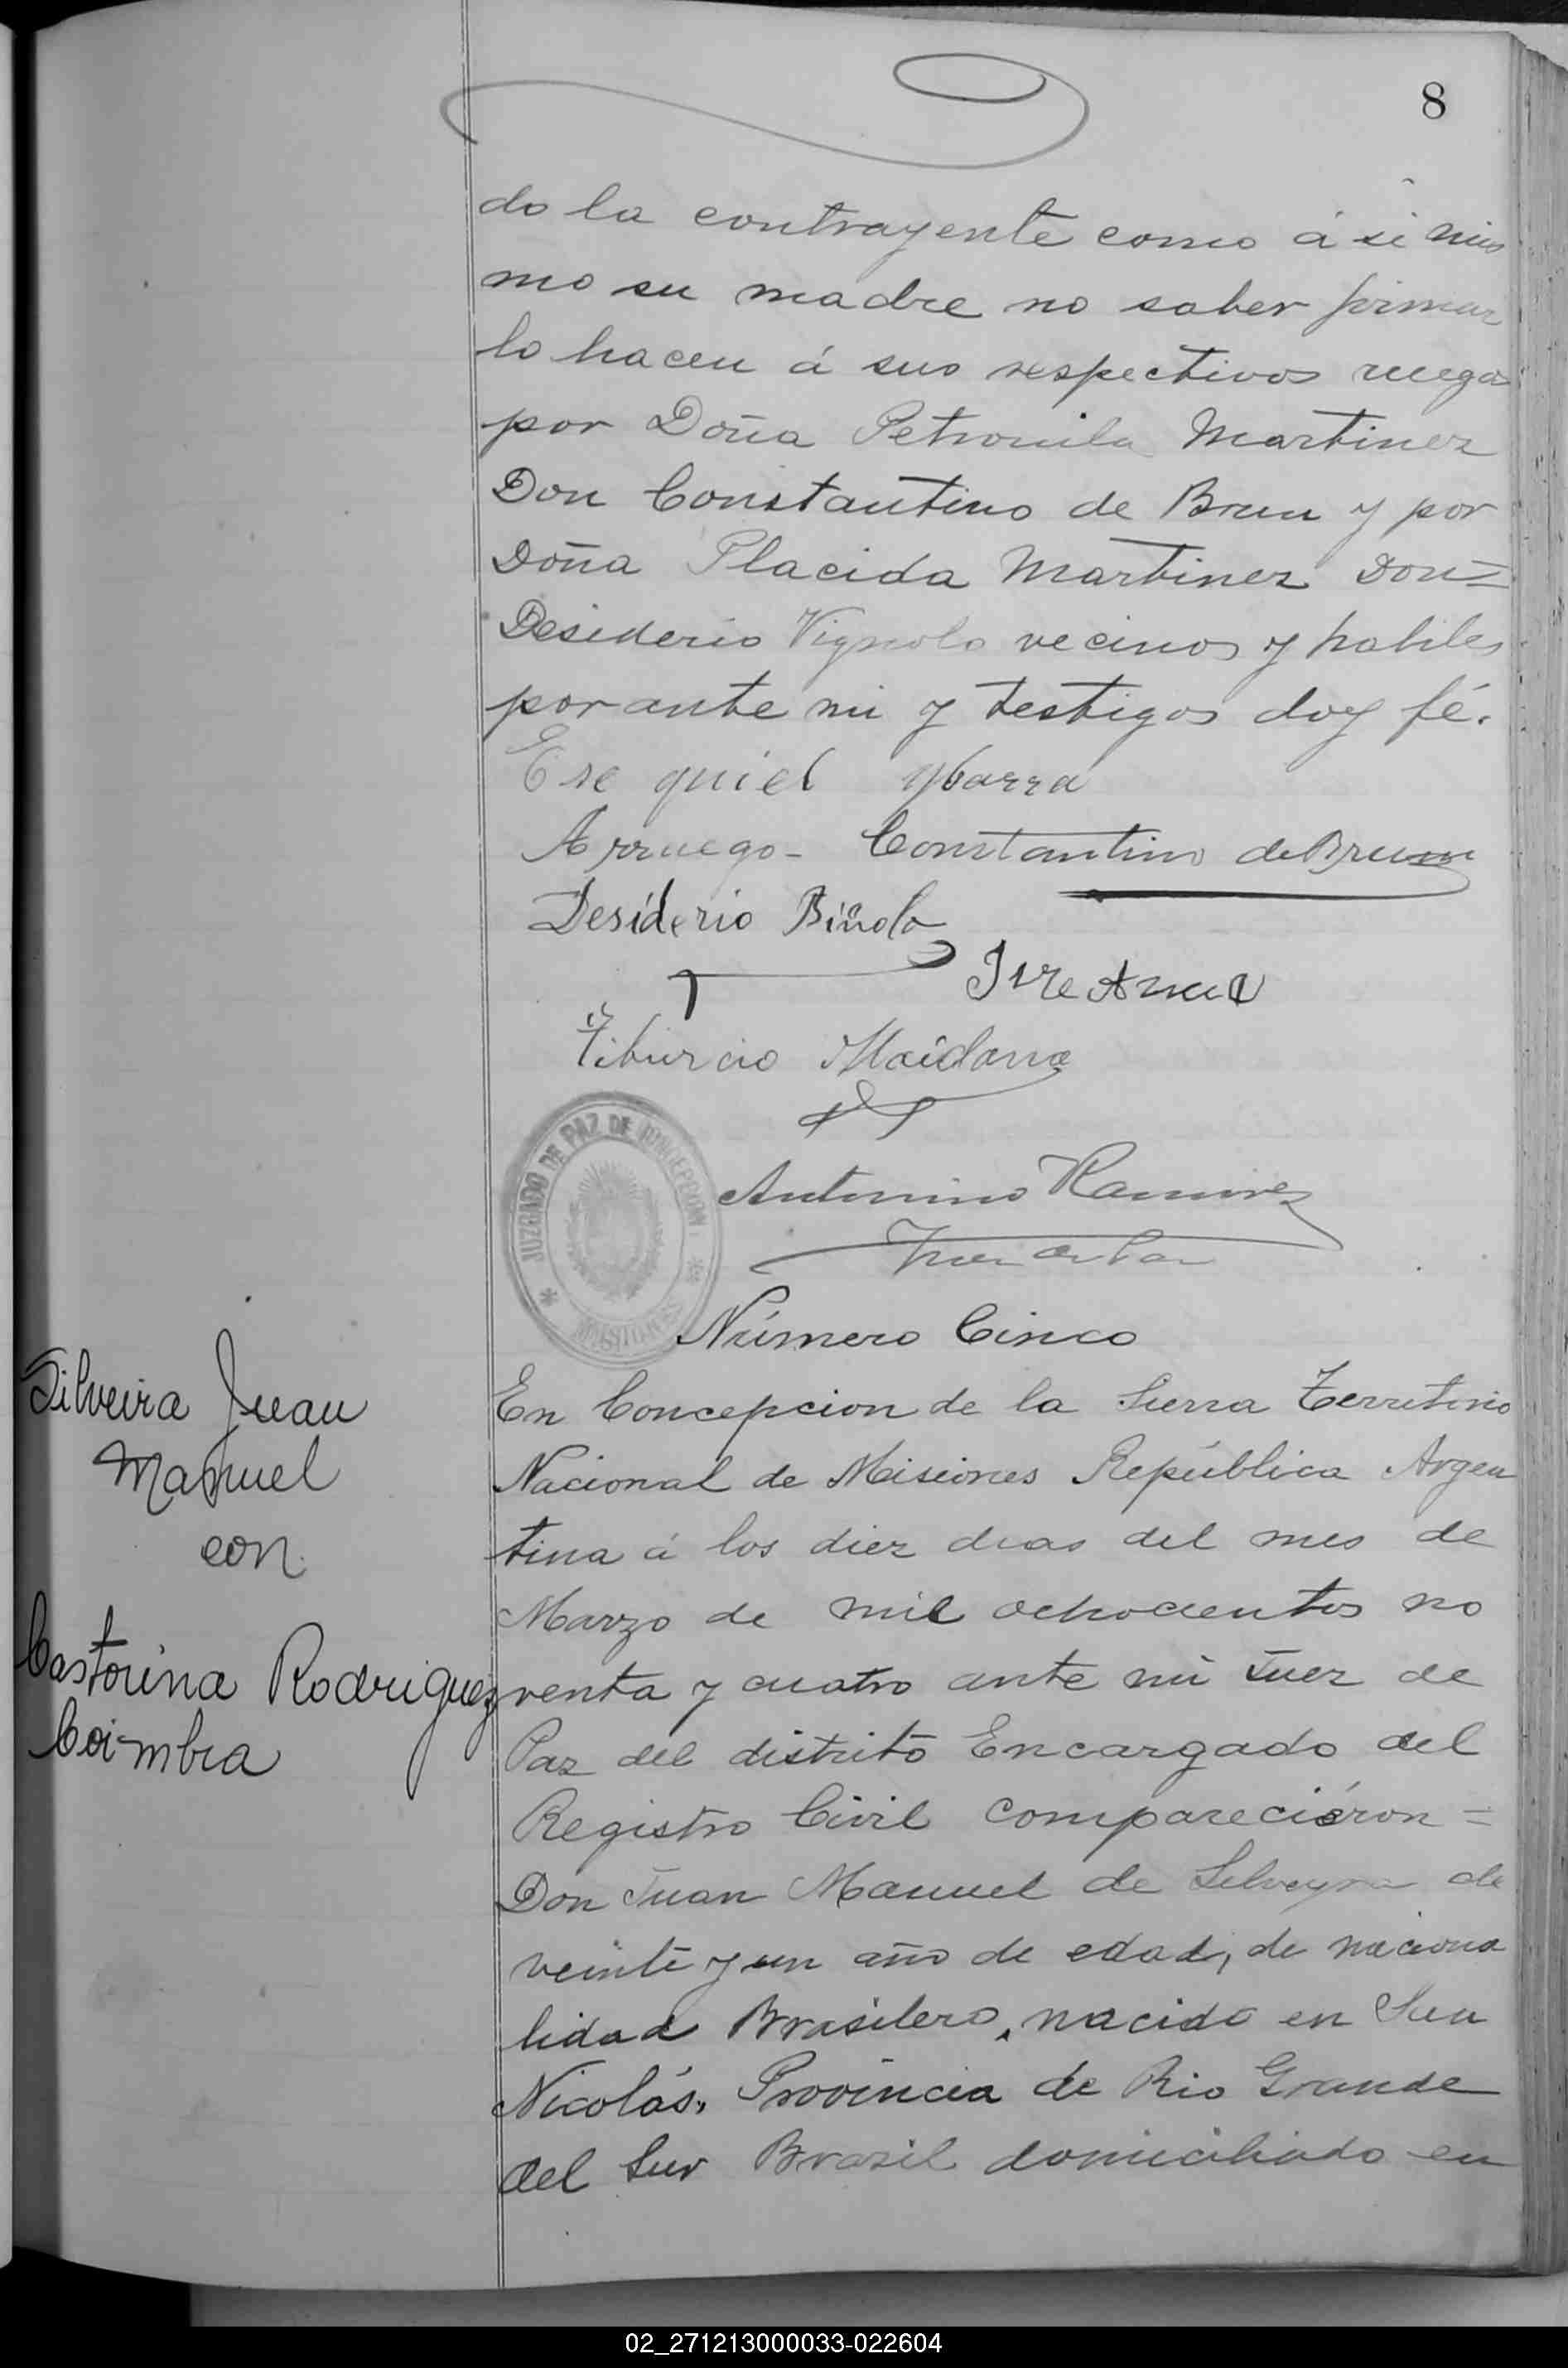 8
do la contrayente como á si mis
mo su madre no saber firmar
lo hacen á sus respectivos ruegos
por Doña Petronila Martinez
Don Constantino de Brun y por
Doña Placida Martinez Don=
Desiderio Vignolo vecinos y habiles
por ante mi y testigos doy fé.
Esequiel Ybarra
Arruego- Constantino de Brum
Desiderio Biñolo
Tiburcio Maidana
JUZGADO DE PAZ DE CONCEPCION
MISIONES
Antonino Ramirez
Juez de Paz
Número Cinco
Silveira Juan
Manuel
con
Castorina Rodriguez
Coimbra
En Concepcion de la Sierra Territorio
Nacional de Misiones República Argen
tina á los diez dias del mes de
Marzo de mil ochocientos no
venta y cuatro ante mi Juez de
Paz del distrito Encargado del
Registro Civil compareciéron =
Don Juan Manuel de Silveyra de
veinte y un año de edad, de naciona
lidad Brasilero, nacido en San
Nicolás, Provincia de Rio Grande
del Sur Brazil domiciliado en
02_271213000033-022604